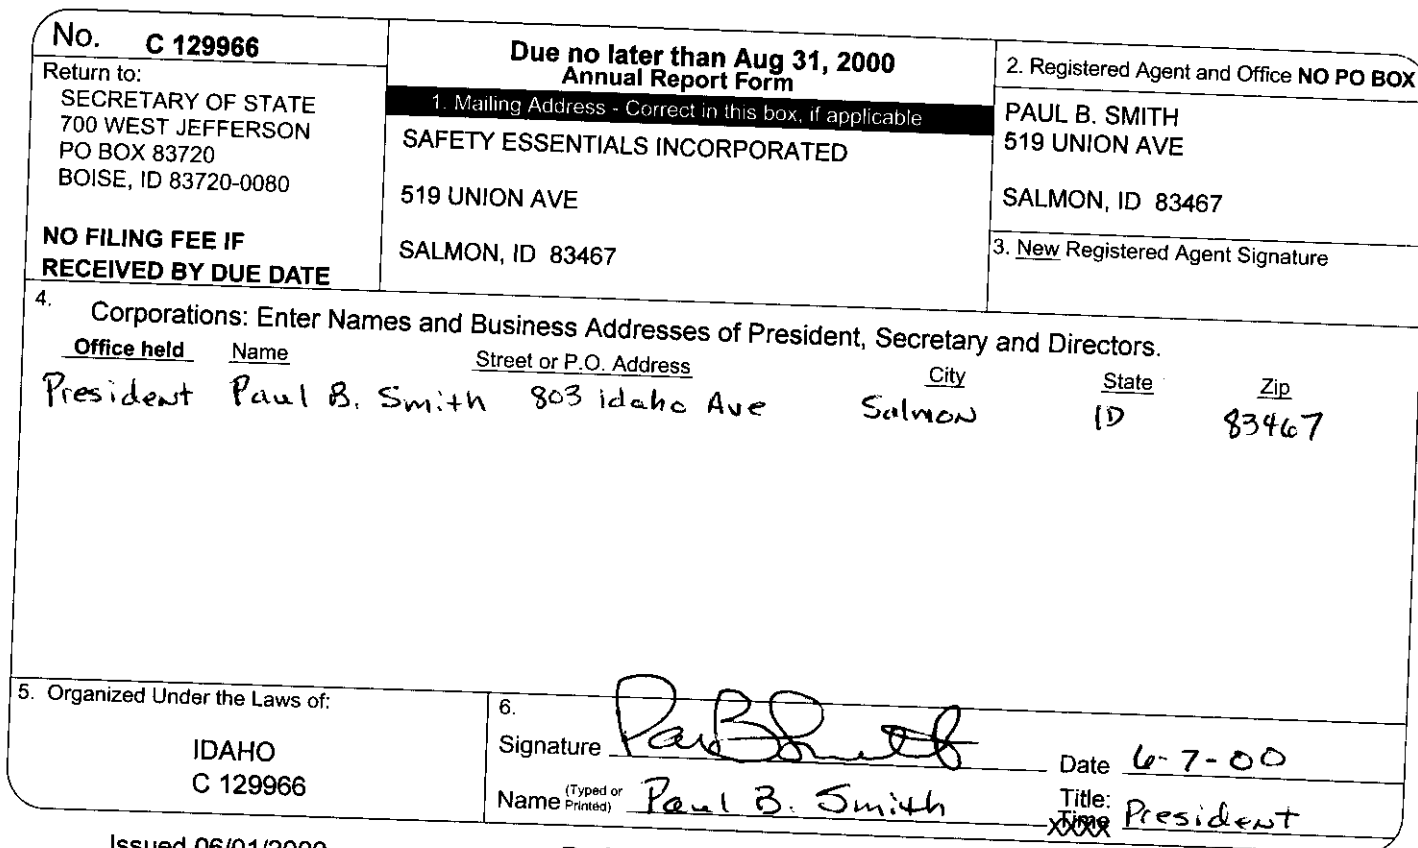 No. C 129966
Return to:
SECRETARY OF STATE
700 WEST JEFFERSON
PO BOX 83720
BOISE, ID 83720-0080
NO FILING FEE IF
RECEIVED BY DUE DATE
Due no later than Aug 31, 2000
Annual Report Form
1. Mailing Address - Correct in this box, if applicable
SAFETY ESSENTIALS INCORPORATED
519 UNION AVE
SALMON, ID 83467
2. Registered Agent and Office NO PO BOX
PAUL B. SMITH
519 UNION AVE
SALMON, ID 83467
3. New Registered Agent Signature
4.
Corporations: Enter Names and Business Addresses of President, Secretary and Directors.
Office held Name Street or P.O. Address City State Zip
President Paul B. Smith 803 idaho Ave Salmon ID 83467
5. Organized Under the Laws of:
IDAHO
C 129966
6.
Signature Paul B Smith
Date 6-7-00
Name (Typed or Printed) Paul B. Smith
Title: President
Issued 06/01/2000